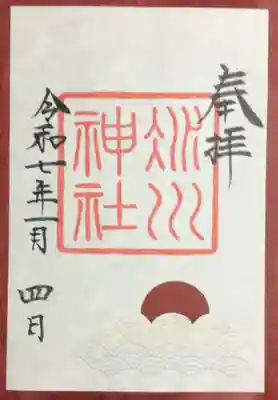 奉拝
氷川
神社
令和七年一月四日